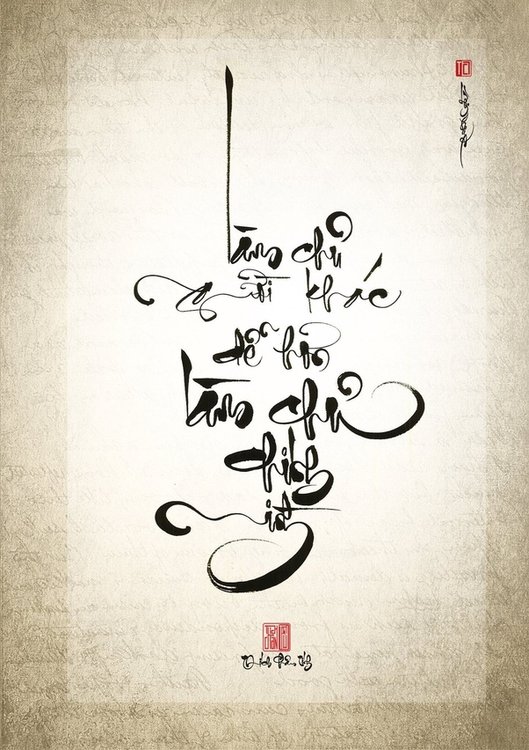 Làm chủ
người khác
dễ hơn
làm chủ
chính
mình